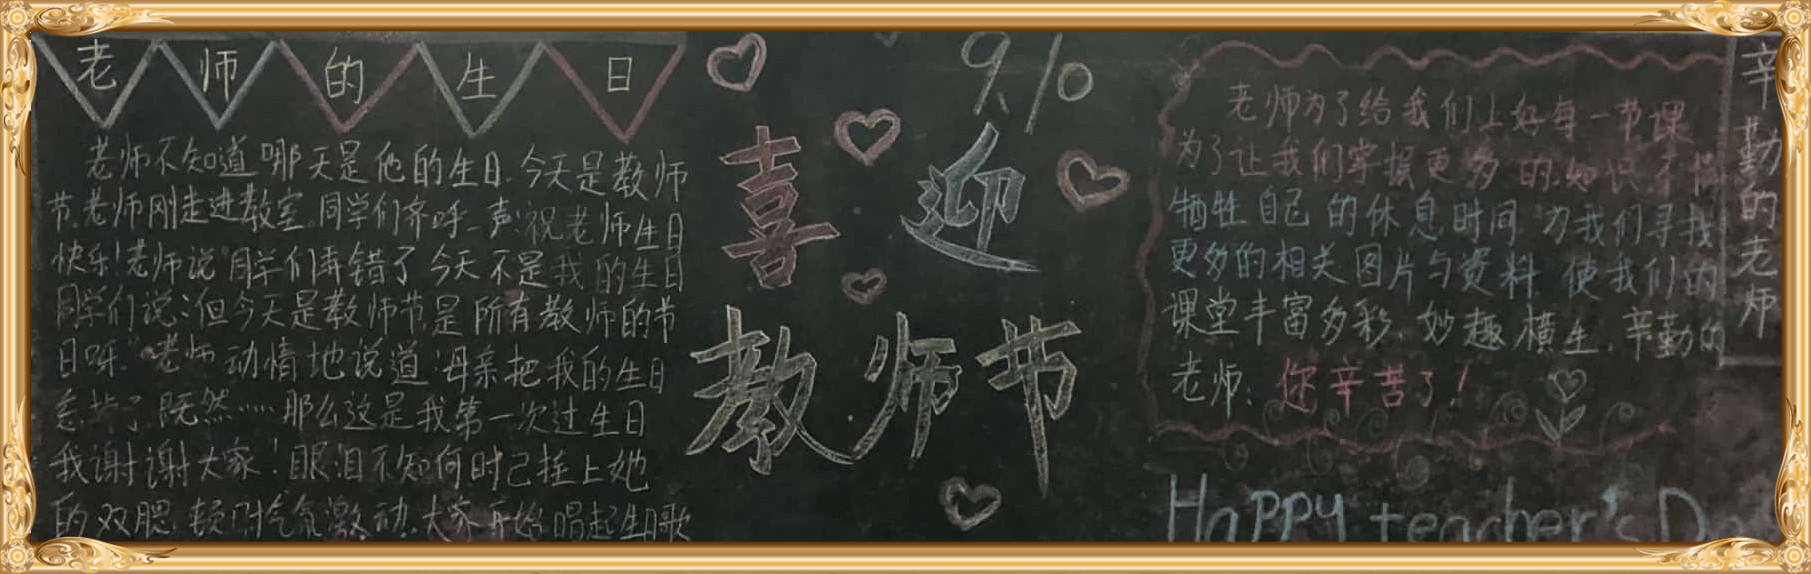 老师的生日
老师不知道哪天是他的生日.今天是教师
节.老师刚走进教室.同学们齐呼一声:祝老师生日
快乐!老师说"同学们弄错了今天不是我的生日
同学们说:但今天是教师节,是所有教师的节
日呀."老师动情地说道:母亲把我的生日
忘掉了.既然……那么这是我第一次过生日
我谢谢大家!眼泪不知何时已挂上她
的双腮.顿时气氛激动.大家开始唱起生日歌
9.10
喜迎
教师节
老师为了给我们上好每一节课
为了让我们掌握更多的知识.不惜
牺牲自己的休息时间为我们寻找
更多的相关图片与资料使我们的
课堂丰富多彩,妙趣横生.辛勤的
老师:你辛苦了!
辛勤的老师
Happy teacher's Da